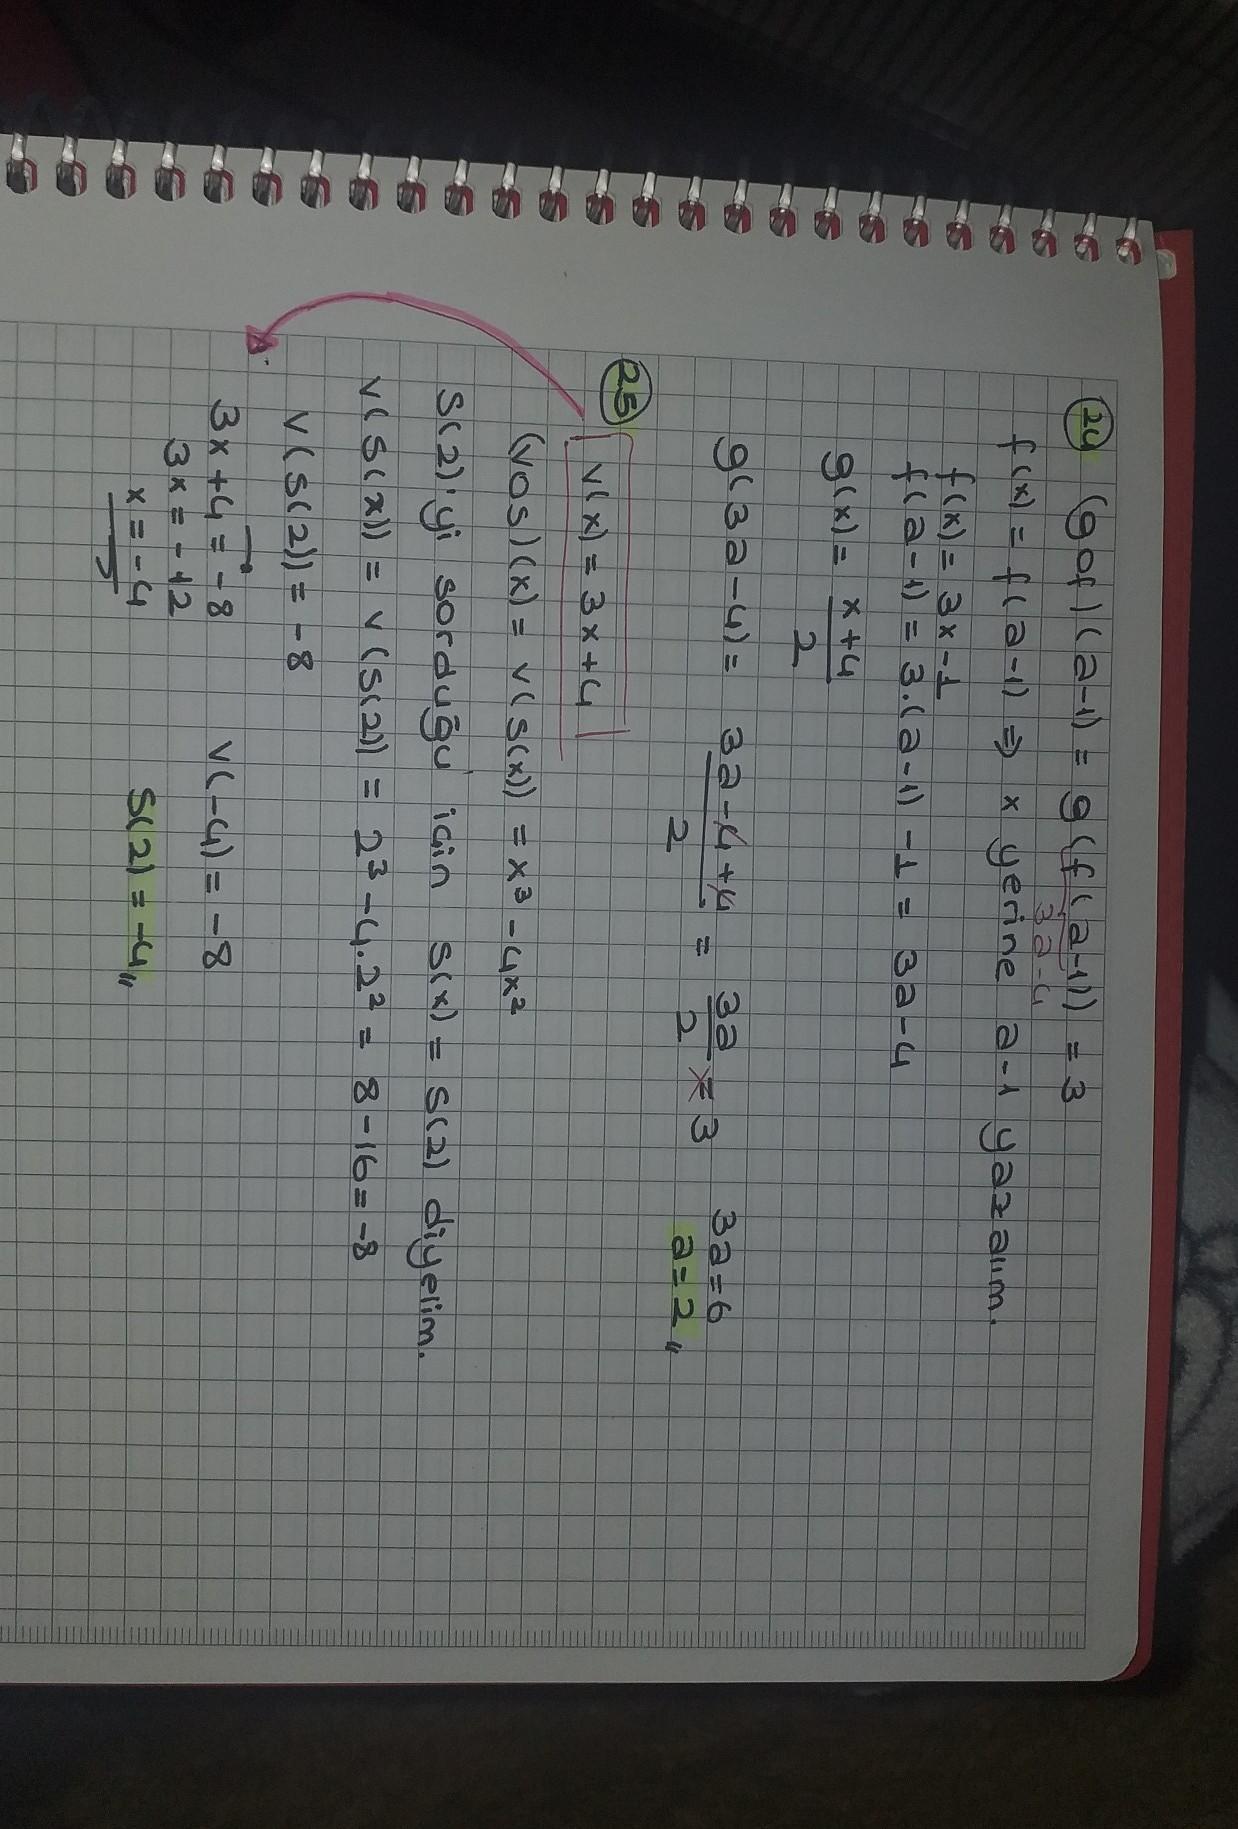 24 (gof)(a-1) = g(f(a-1)) = 3
3a-4
f(x) = f(a-1) ⇒ x yerine a-1 yazalım.
f(x) = 3x-1
f(a-1) = 3.(a-1) -1 = 3a-4
g(x) = x+4/2
g(3a-4) = 3a-4+4/2 = 3a/2 = 3 3a=6
a=2"
25 v(x) = 3x+4
(vos)(x) = v(s(x)) = x³ - 4x²
s(2)'yi sorduğu için s(x) = s(2) diyelim.
v(s(x)) = v(s(2)) = 2³ - 4.2² = 8 - 16 = -8
v(s(2)) = -8
3x+4 = -8 v(-4) = -8
3x = -12
x = -4 s(2) = -4"